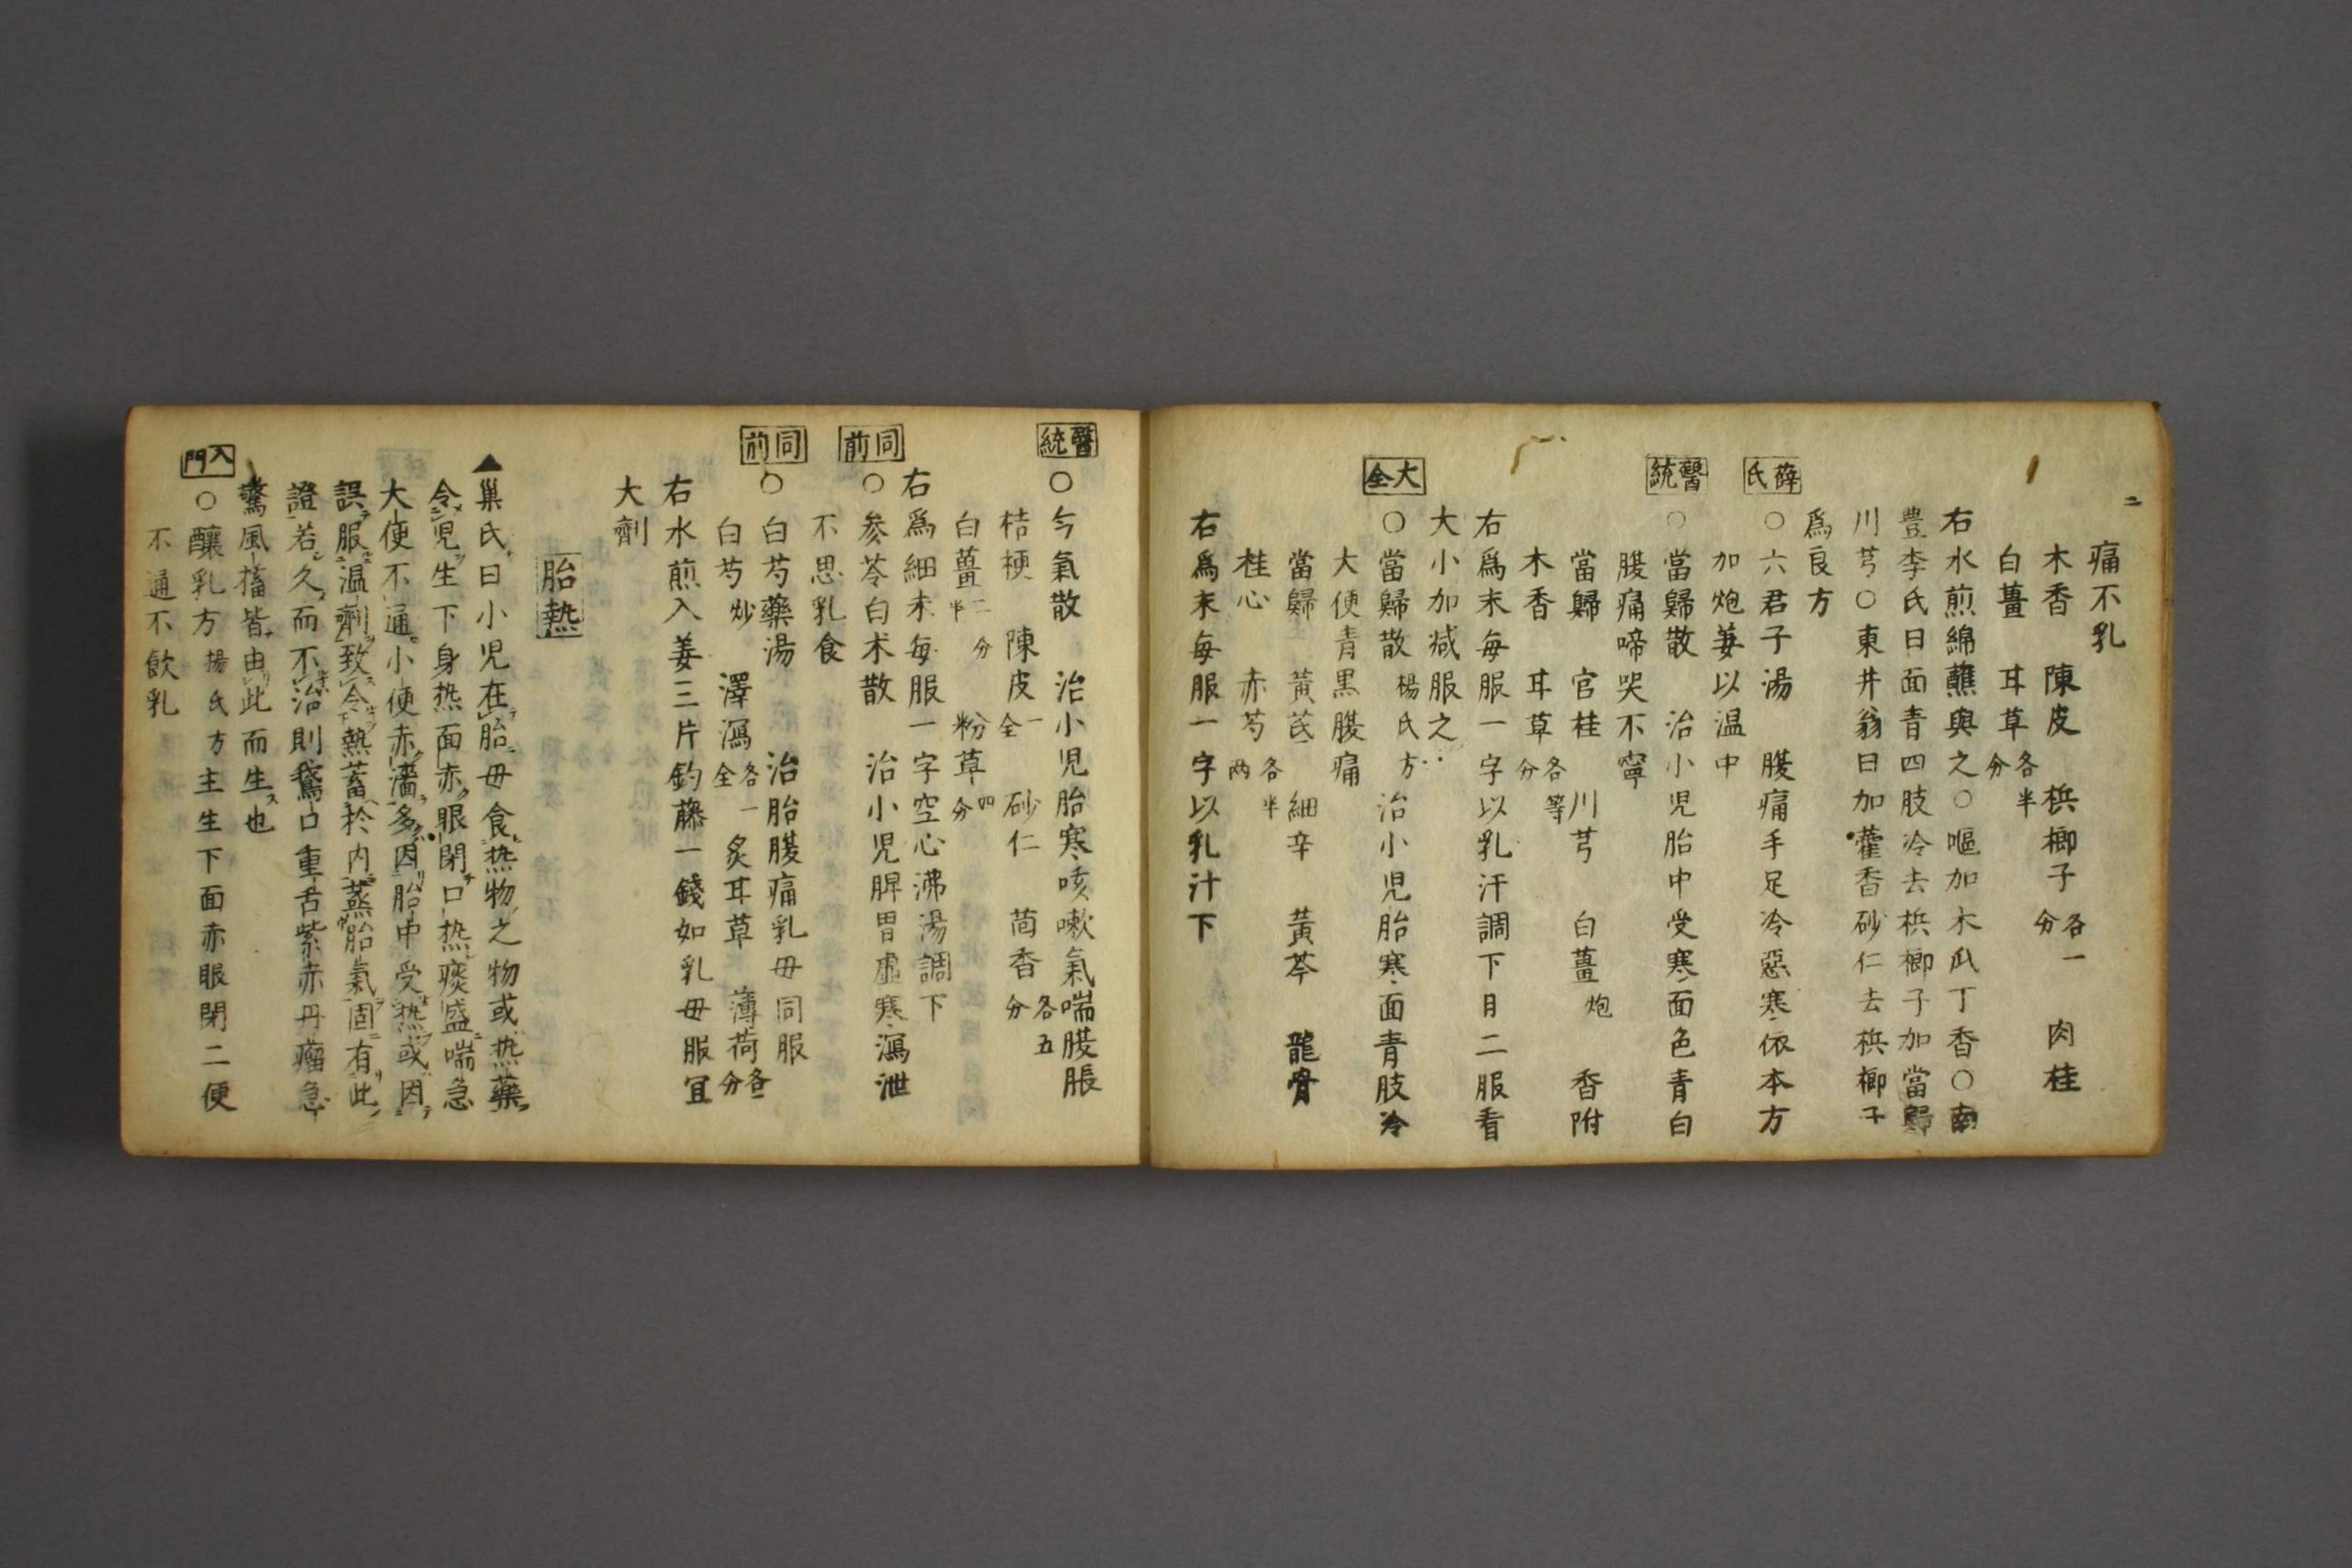 二
痛不乳
木香 陳皮 梹榔子 各一分 肉桂
白薑 耳草 各半分
右水煎綿蘸與之○嘔加木瓜丁香○南
豊李氏曰面青四肢冷去梹榔子加當歸
川芎○東井翁曰加藿香砂仁去梹榔子
爲良方
薛氏
○六君子湯 腹痛手足冷惡寒依本方
加炮姜以温中
醫統
○當歸散 治小児胎中受寒面色青白
腹痛啼哭不寧
當歸 官桂 川芎 白薑 炮 香附
木香 耳草 各等分
右爲末每服一字以乳汗調下月二服看
大小加减服之
大全
○當歸散 楊氏方 治小児胎寒面青肢冷
大便青黒腹痛
當歸 黃茋 細辛 黃芩 龍骨
桂心 赤芍 各半两
右爲末每服一字以乳汁下
醫統
○今氣散 治小児胎寒咳嗽氣喘腹脹
桔梗 陳皮 一全 砂仁 茴香 各五分
白薑 二分半 粉草 四分
右爲細末每服一字空心沸湯調下
同前
○參苓白术散 治小児脾胃虛寒瀉泄
不思乳食
同前
○白芍藥湯 治胎腹痛乳母同服
白芍 炒 澤瀉 各一全 炙耳草 薄荷 各一分
右水煎入姜三片釣藤一錢如乳母服宜
大劑
胎熱
▲巢氏曰小児在胎母食热物之物或热藥
令児生下身热面赤眼閉口热痰盛喘急
大便不通小便赤濇多因胎中受热或因
誤服温劑致令熱蓄於内蒸胎氣固有此
證若久而不治則鵞口重舌紫赤丹瘤急
驚風搐皆由此而生也
入門
○釀乳方 楊氏方主生下面赤眼閉二便
不通不飲乳